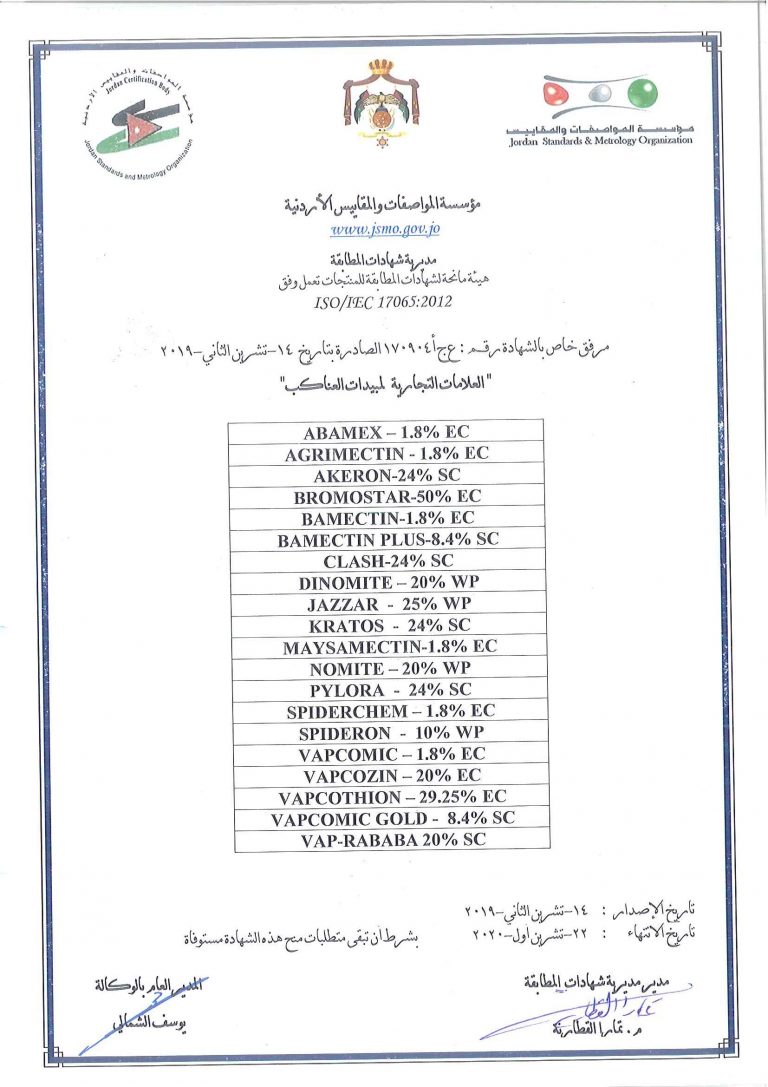 مؤسسة المواصفات والمقاييس الأردنية
Jordan Certification Body
Jordan Standards and Metrology Organization
مؤسسة المواصفات والمقاييس
Jordan Standards & Metrology Organization
مؤسسة المواصفات والمقاييس الأردنية
www.jsmo.gov.jo
مديرية شهادات المطابقة
هيئة مانحة لشهادات المطابقة للمنتجات تعمل وفق
ISO/IEC 17065:2012
مرفق خاص بالشهادة رقم : ع ج أ ١٧٠٩٠٤ الصادرة بتاريخ ١٤-تشرين الثاني-٢٠١٩
"العلامات التجارية لمبيدات العناكب"
ABAMEX – 1.8% EC
AGRIMECTIN - 1.8% EC
AKERON-24% SC
BROMOSTAR-50% EC
BAMECTIN-1.8% EC
BAMECTIN PLUS-8.4% SC
CLASH-24% SC
DINOMITE – 20% WP
JAZZAR - 25% WP
KRATOS - 24% SC
MAYSAMECTIN-1.8% EC
NOMITE – 20% WP
PYLORA - 24% SC
SPIDERCHEM – 1.8% EC
SPIDERON - 10% WP
VAPCOMIC – 1.8% EC
VAPCOZIN – 20% EC
VAPCOTHION – 29.25% EC
VAPCOMIC GOLD - 8.4% SC
VAP-RABABA 20% SC
تاريخ الإصدار : ١٤-تشرين الثاني-٢٠١٩
تاريخ الانتهاء : ٢٢-تشرين اول-٢٠٢٠
بشرط أن تبقى متطلبات منح هذه الشهادة مستوفاة
مدير مديرية شهادات المطابقة
م. تمارا القطارنة
المدير العام بالوكالة
يوسف الشمالي